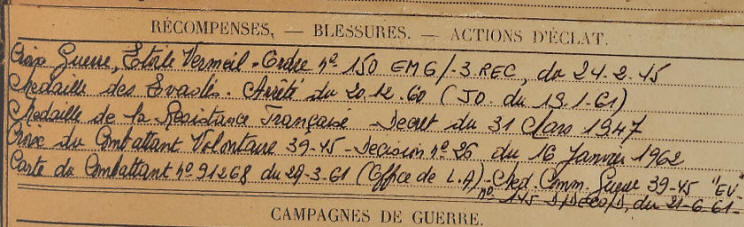 RÉCOMPENSES, — BLESSURES. — ACTIONS D'ÉCLAT.
Croix Guerre, Etoile Vermeil - Ordre nº 150 EMG/-3.REC, du 24-2-45
Médaille des Evadés. Arrêté du 20.12.60 (JO. du 19.1-61)
Médaille de la Résistance Française Decret du 31 Mars 1947
Croix du Combattant Volontaire 39-45 - Decision nº 26 du 16 Janvier 1962
Carte du Combattant nº 91268 du 29-3-61 (Office de L.A) - Med. Comm. Guerre 39-45 "EV"
nº 145 du 21-6-61-
CAMPAGNES DE GUERRE.